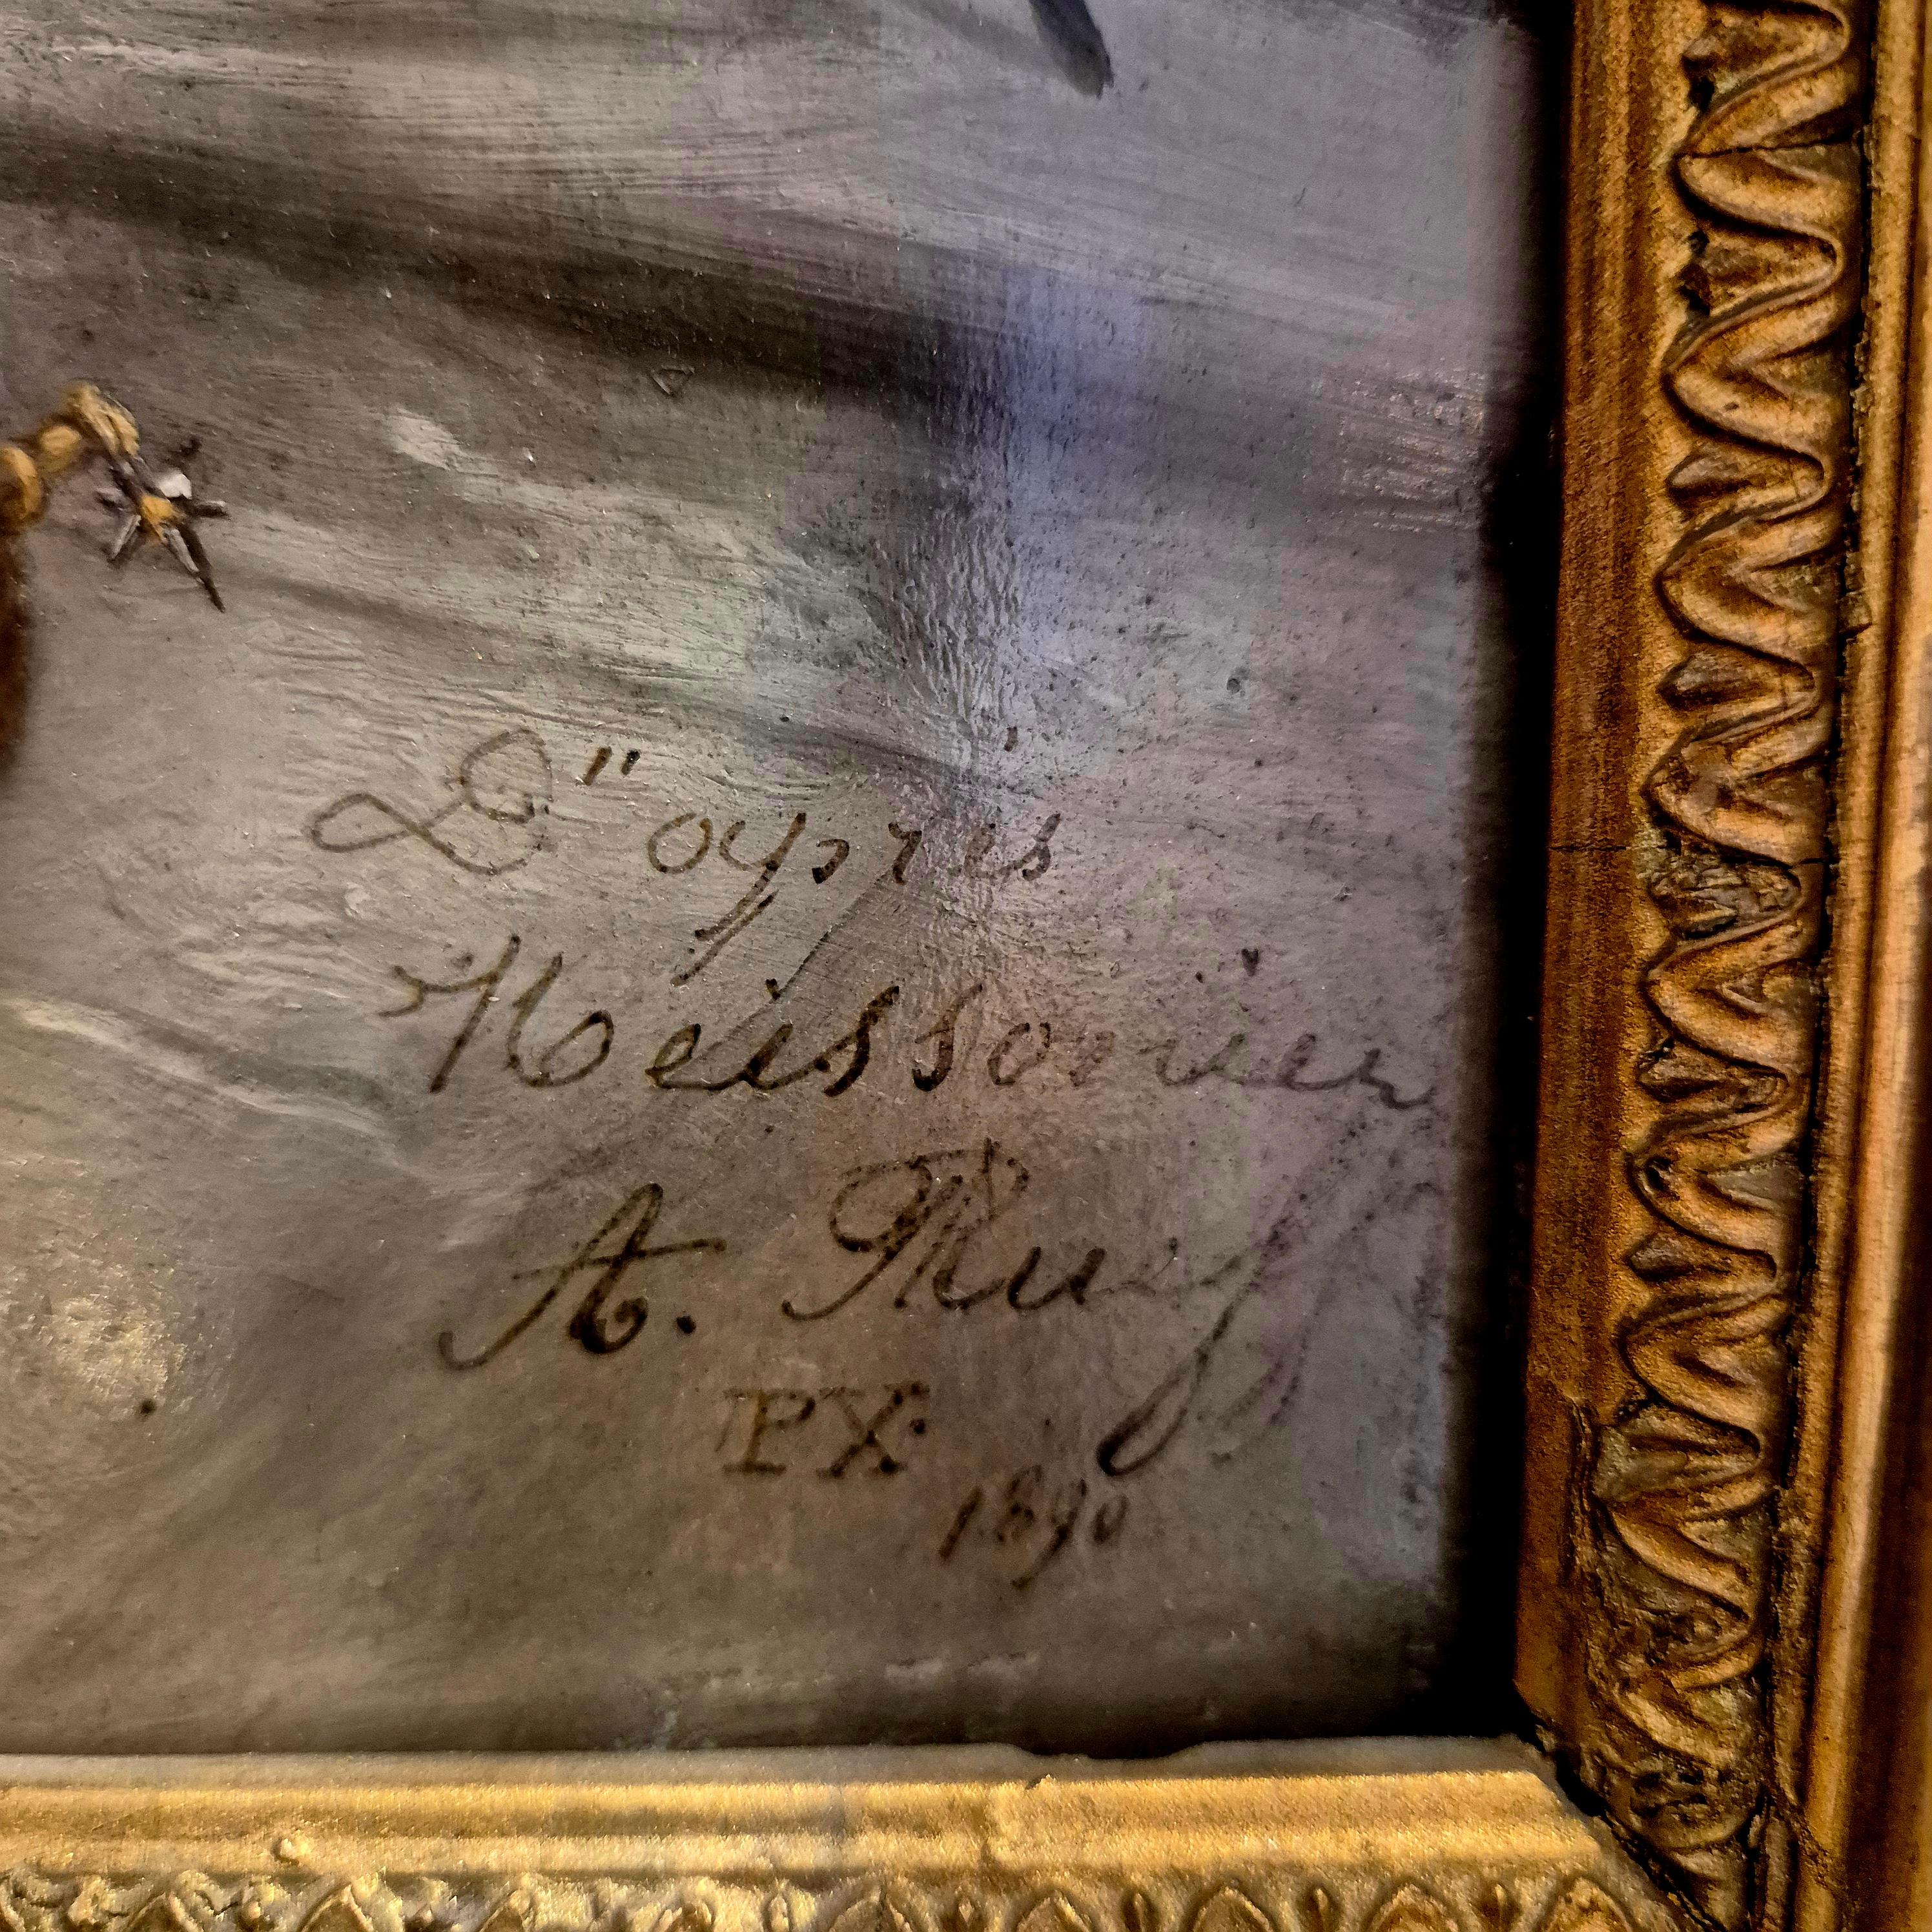 D"après
Meissonier
A. Ruiz
PX.
1890